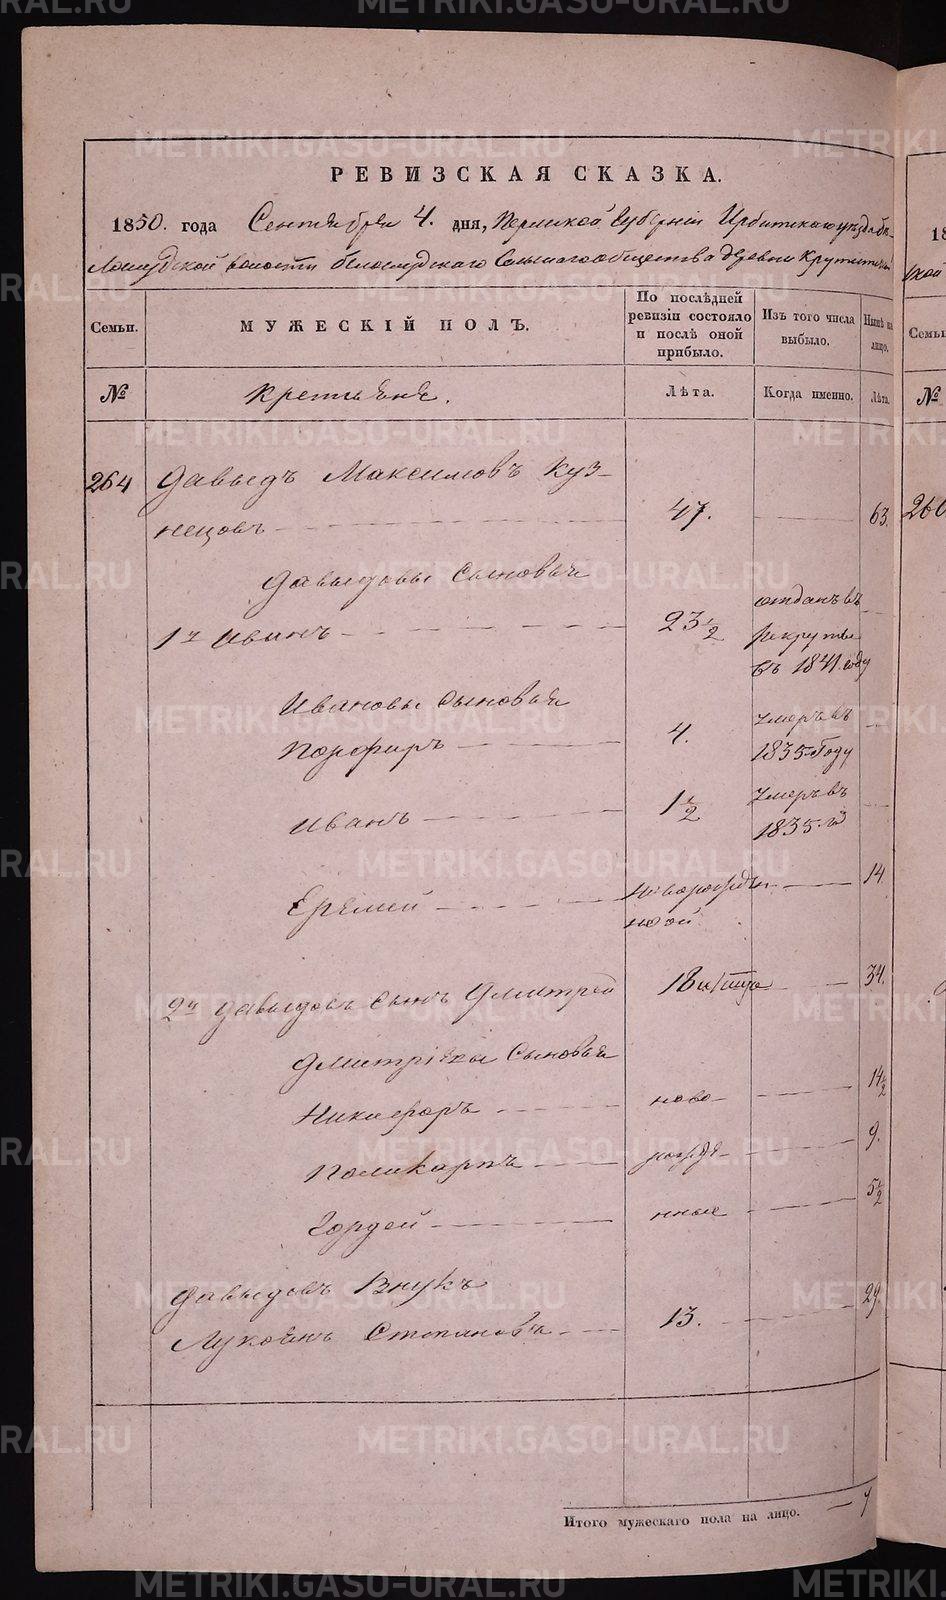 РЕВИЗСКАЯ СКАЗКА.
1850. года Сентября 4. дня, Пермской Губернии Ирбитского уѣзда бѣ-
лослудской волости белослудскаго Сельскаго общества деревни Крутихиной
Семьи. МУЖЕСКІЙ ПОЛЪ. По послѣдней ревизіи состояло и послѣ оной прибыло. Изъ того числа выбыло. Нынѣ на лицо.
№ Крестьяне. Лѣта. Когда именно. Лѣта.
264 Давыдъ Максимовъ Куз-
нецовъ 47. 63.
Давыдовы сыновья
1й Иванъ 23 1/2 отданъ въ рекруты въ 1841 году
Ивановы сыновья
Порфиръ 4. умеръ въ 1835 Году
Иванъ 1 1/2 умеръ въ 1835 г.
Еремей новорожден-
ной 14
2й Давыдовъ сынъ Дмитрей 18 34.
Дмитріевы Сыновья
Никифоръ ново- 14 1/2
Поликарпъ рожде- 9.
Гордей нные 5 1/2
Давыдовъ Внукъ
Лукоянъ Степановъ 13. 29.
Итого мужескаго пола на лицо. 7
METRIKI.GASO-URAL.RU